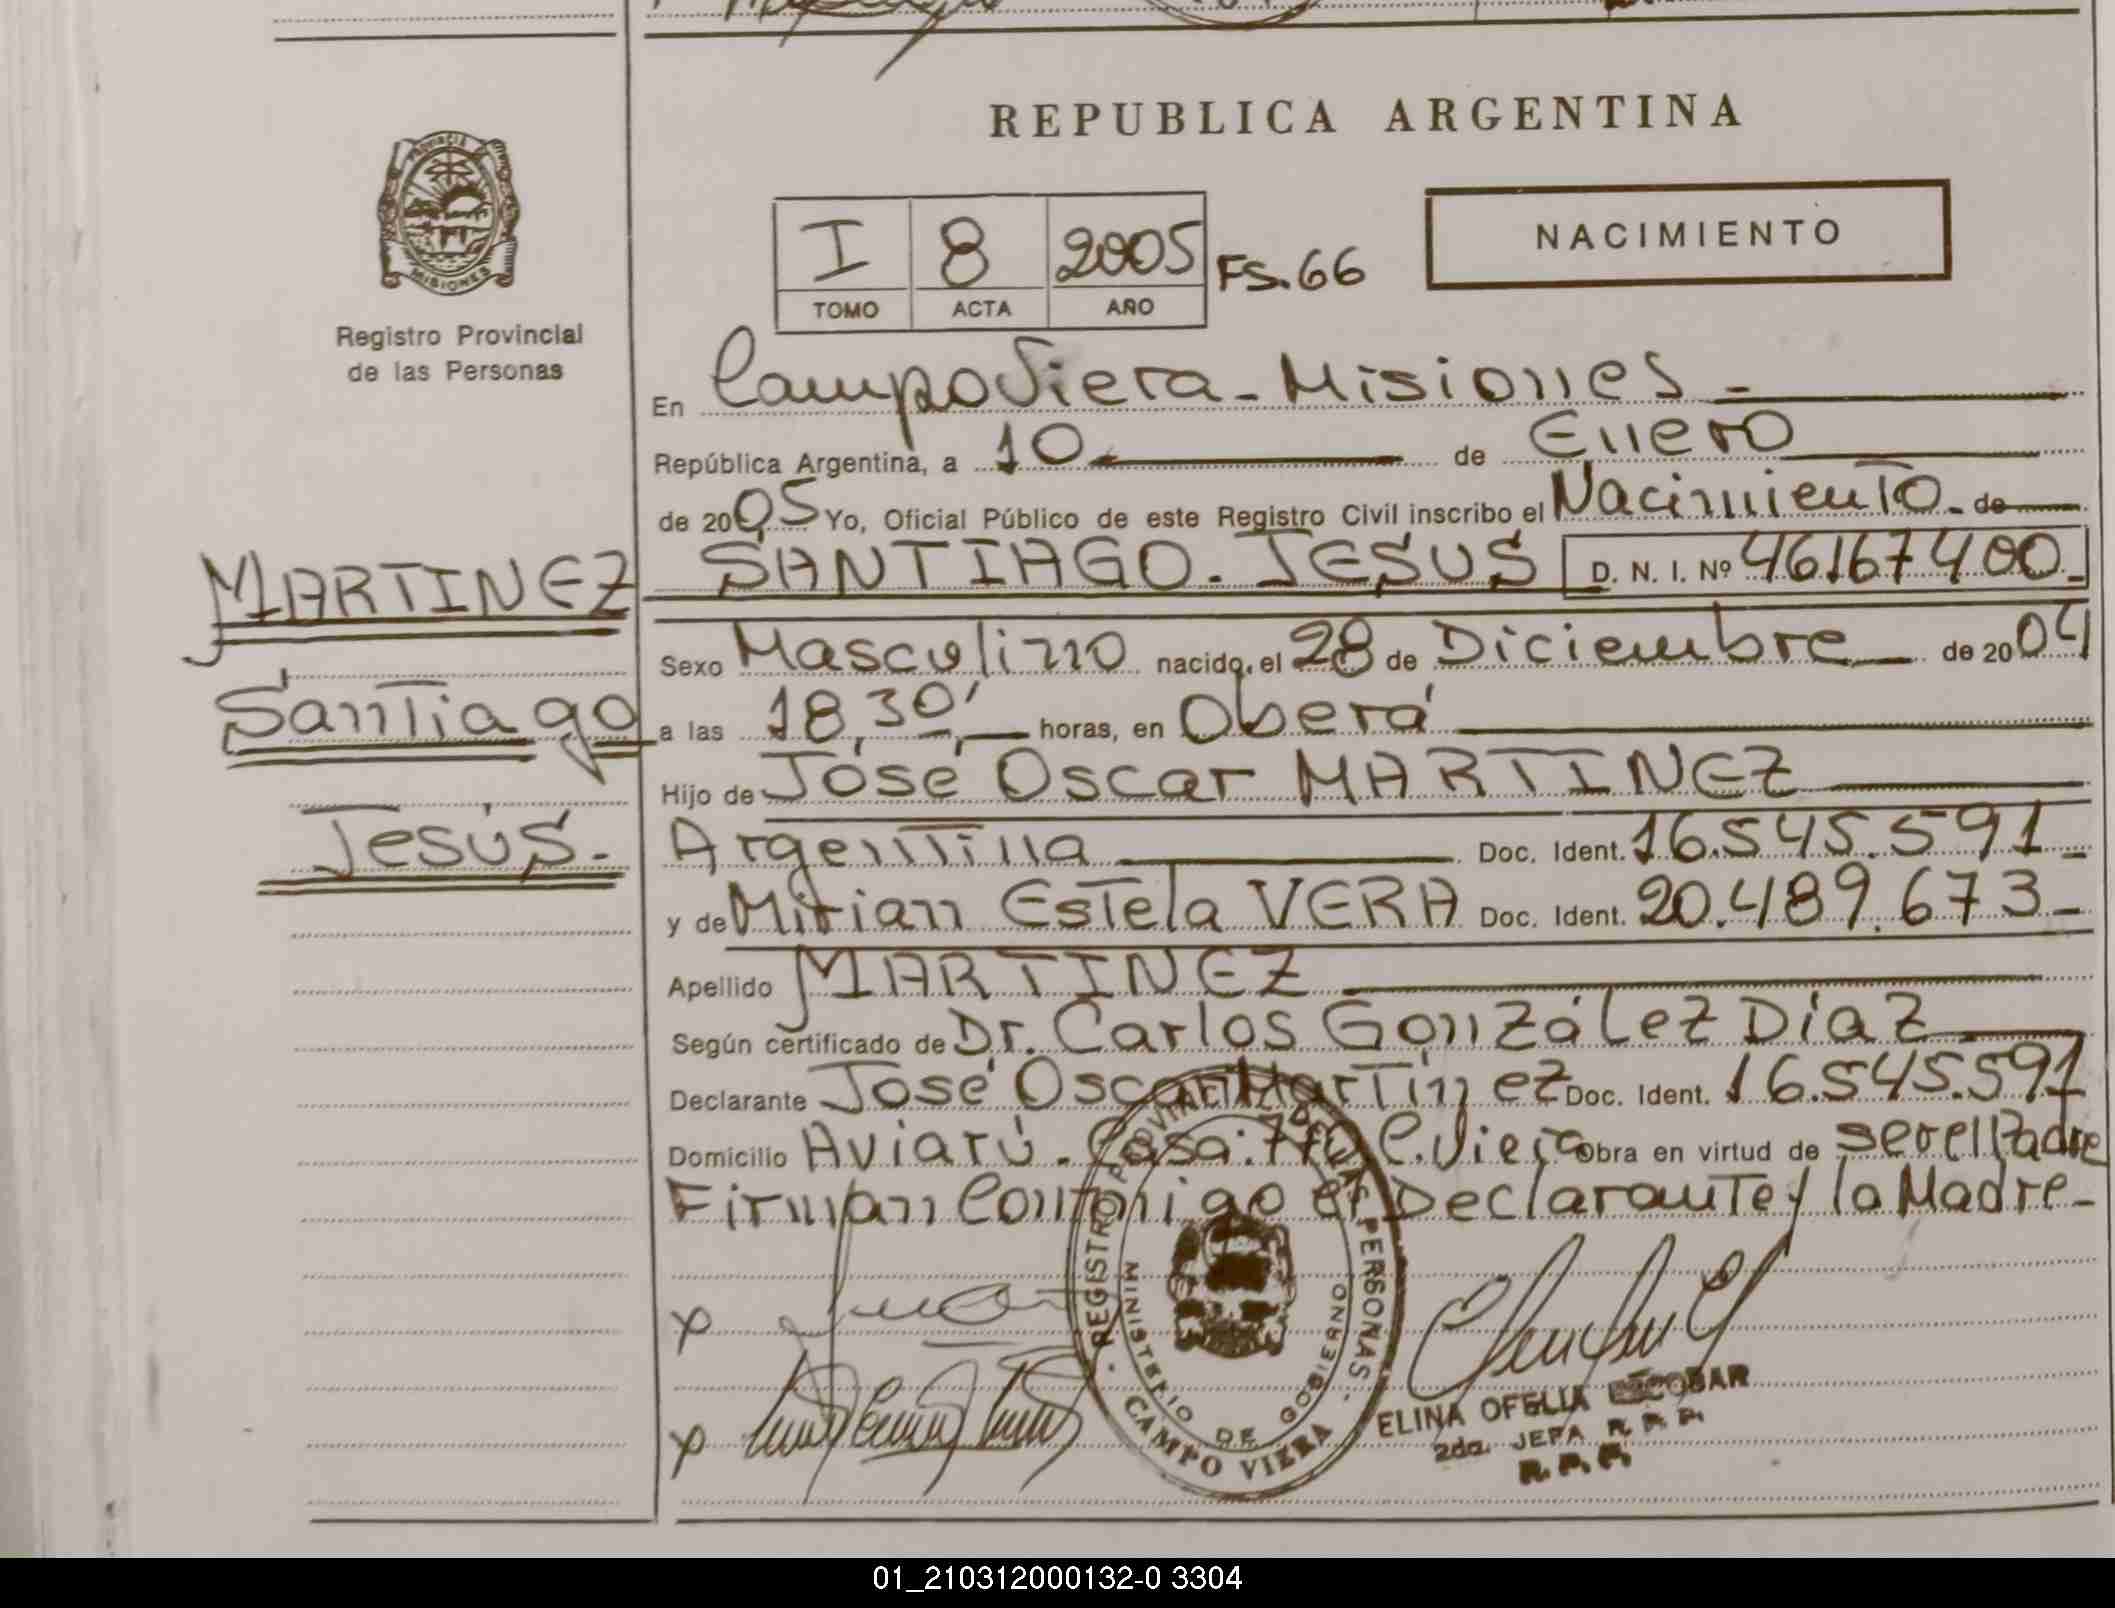 REPUBLICA ARGENTINA
PROVINCIA
MISIONES
Registro Provincial
de las Personas
I 8 2005 FS.66
TOMO ACTA AÑO
NACIMIENTO
En Campo Viera - Misiones -
República Argentina, a 10 de Enero
de 2005 Yo, Oficial Público de este Registro Civil inscribo el Nacimiento - de
MARTINEZ SANTIAGO. JESUS D. N. I. Nº 46.167.400-
Sexo Masculino nacido el 28 de Diciembre de 2004
Santiago a las 18,30' horas, en Oberá
Hijo de José Oscar MARTINEZ
Jesús. Argentina Doc. Ident. 16.545.591-
y de Mirian Estela VERA Doc. Ident. 20.489.673-
Apellido MARTINEZ
Según certificado de Dr. Carlos González Díaz
Declarante José Oscar Martínez Doc. Ident. 16.545.591
Domicilio Aviarú. Casa: C. Viera Obra en virtud de ser el Padre
Firman Conmigo el Declarante y la Madre-
x
x
REGISTRO PROVINCIAL DE LAS PERSONAS
MINISTERIO DE GOBIERNO
CAMPO VIERA
ELINA OFELIA ESCOBAR
2da. JEFA R. P. P.
R. P. P.
01_210312000132-0 3304